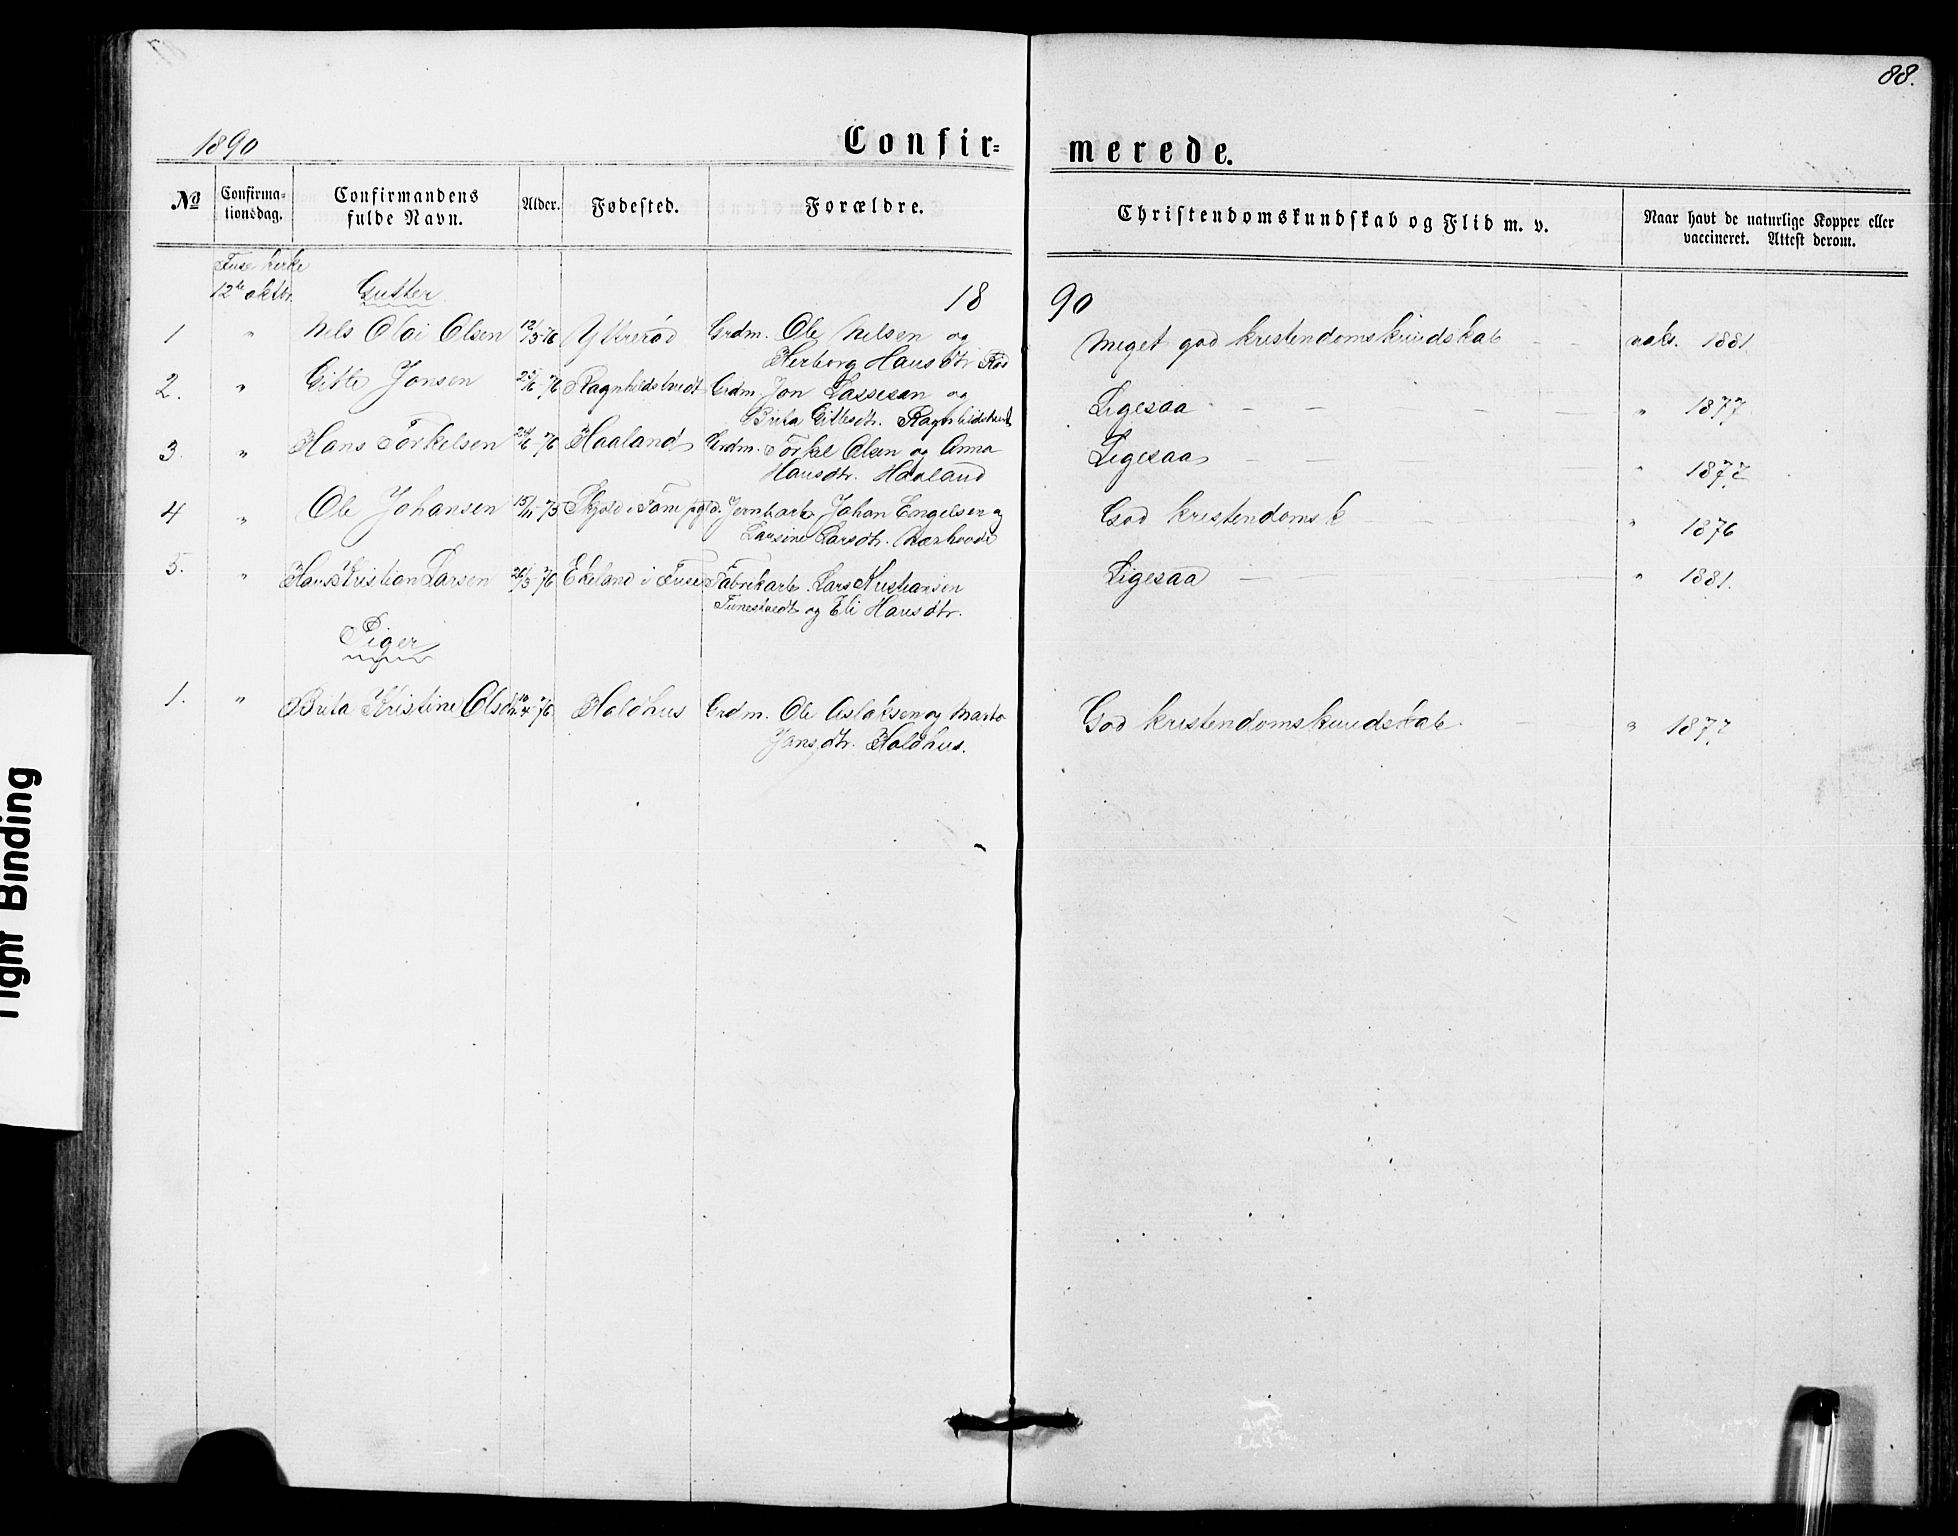 88.
1890
Confir=
merede.
No
Confirma-
tionsdag.
Confirmandens
fulde Navn.
Alder.
Fødested.
Forældre.
Christendomskundskab og Flid m. v.
Naar havt de naturlige Kopper eller
vaccineret. Attest derom.
Fuse kirke
12te oktbr.
Gutter
18
90
1 " Nels Olai Olsen 12/3-76 Ytrerød Grdm. Ole Nelsen og Meget god kristendomskundskab vaks. 1881.
Herborg Hansdtr Rød
2. " Gitle Jonsen 25/6-76 Ragnhildstvedt Grdm. Jon Lassesen og Ligesaa " 1877
Brita Gitlesdtr. Ragnhildstvedt
3. " Hans Torkelsen 24/6-76 Haaland Grdm. Torkel Olsen og Anna Ligesaa " 1877
Hansdtr. Haaland
4 " Ole Johansen 15/11-75 Skjold i Fane pgld. Jernbarb. Johan Engelsen og God kristendomsk " 1876
Larsine Larsdtr.
5. " Hans Kristian Larsen 26/3-76 Ekeland i Fuse Fabrikarb. Lars Kristiansen Ligesaa " 1881.
og Eli Hansdtr.
Piger
1. " Brita Kristine Olsdtr. 10/4-76 Holdhus Grdm. Ole Aslaksen og Marta God kristendomskundskab " 1877
Jonsdtr. Holdhus.
Tight Binding